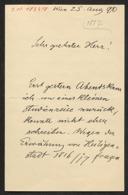 Wien 25. Aug 90
Sehr geehrter Herr!
Erst gestern Abends kam
ich von einer kleinen
Studienreise zurück,
konnte nicht eher
schreiben. Wegen der
Erwähnung von Heiligen-
stadt 1818